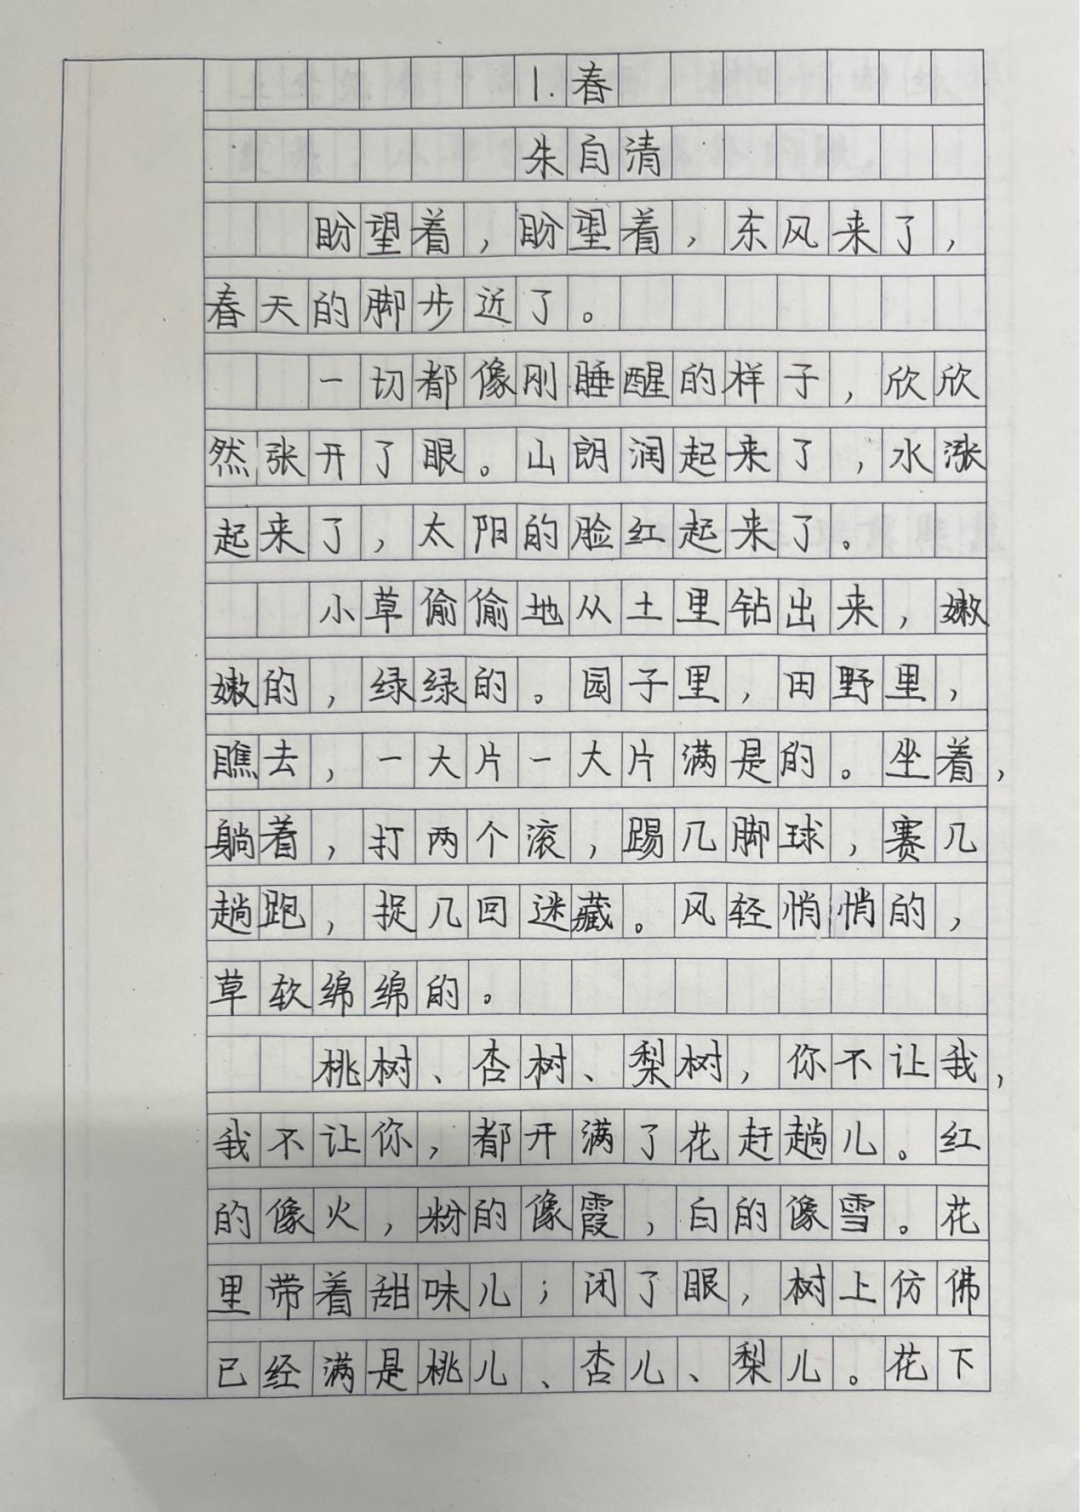 1.春
朱自清
盼望着，盼望着，东风来了，
春天的脚步近了。
一切都像刚睡醒的样子，欣欣
然张开了眼。山朗润起来了，水涨
起来了，太阳的脸红起来了。
小草偷偷地从土里钻出来，嫩
嫩的，绿绿的。园子里，田野里，
瞧去，一大片一大片满是的。坐着，
躺着，打两个滚，踢几脚球，赛几
趟跑，捉几回迷藏。风轻悄悄的，
草软绵绵的。
桃树、杏树、梨树，你不让我，
我不让你，都开满了花赶趟儿。红
的像火，粉的像霞，白的像雪。花
里带着甜味儿；闭了眼，树上仿佛
已经满是桃儿、杏儿、梨儿。花下